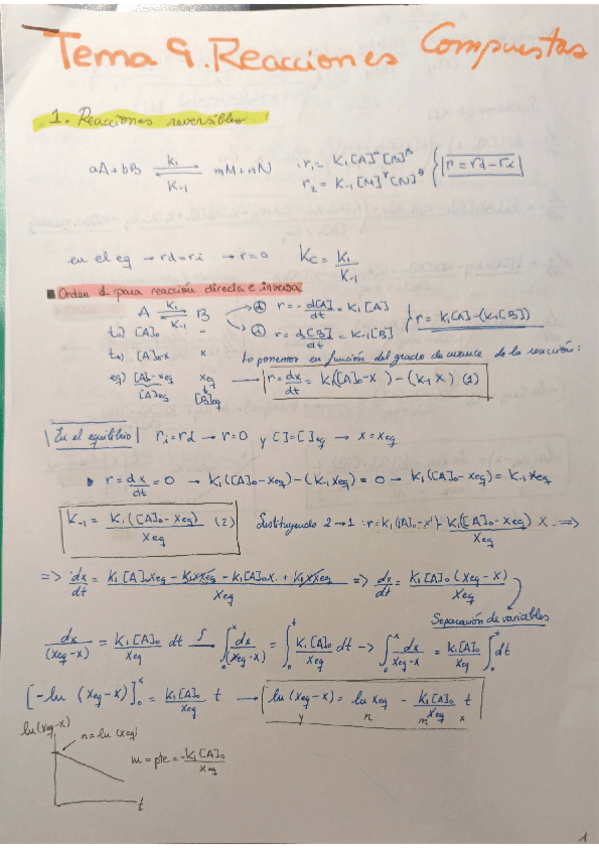 Tema 9. Reacciones Compuestas
1. Reacciones reversibles
aA + bB ⇌ mM + nN   K₁ K₋₁   r₁ = K₁[A]^α[B]^β   r₂ = K₋₁[M]^γ[N]^θ   r = rd - ri
en el eq → rd = ri → r = 0   Kc = K₁/K₋₁
■ Orden 1 para reacción directa e inversa
A ⇌ B   K₁ K₋₁   r = -d[A]/dt = K₁[A]   r = K₁[A] - (K₋₁[B])
t₀) [A]₀ -   r = d[B]/dt = K₋₁[B]
t₀) [A]₀-x x   Lo ponemos en función del grado de avance de la reacción:
eq) [A]₀-xeq xeq → r = dx/dt = K₁([A]₀-x) - (K₋₁ x) (1)
[A]eq [B]eq
En el equilibrio ri = rd → r = 0 y [ ] = [ ]eq → x = xeq
r = dx/dt = 0 → K₁([A]₀-xeq) - (K₋₁xeq) = 0 → K₁([A]₀-xeq) = K₋₁xeq
K₋₁ = K₁([A]₀-xeq)/xeq (2)   Sustituyendo 2 → 1: r = K₁([A]₀-x) - K₁([A]₀-xeq)/xeq x ⇒
⇒ dx/dt = (K₁[A]₀xeq - K₁x xeq - K₁[A]₀x + K₁x xeq)/xeq ⇒ dx/dt = K₁[A]₀(xeq-x)/xeq
Separación de variables
dx/(xeq-x) = K₁[A]₀/xeq dt ∫ → ∫₀ˣ dx/(xeq-x) = ∫₀ᵗ K₁[A]₀/xeq dt → ∫₀ˣ dx/(xeq-x) = K₁[A]₀/xeq ∫₀ᵗ dt
[-ln (xeq-x)]₀ˣ = K₁[A]₀/xeq t → ln (xeq-x) = ln xeq - K₁[A]₀/xeq t
y n m x
ln(xeq-x)
n = ln (xeq)
m = pte = -K₁[A]₀/xeq
t
1